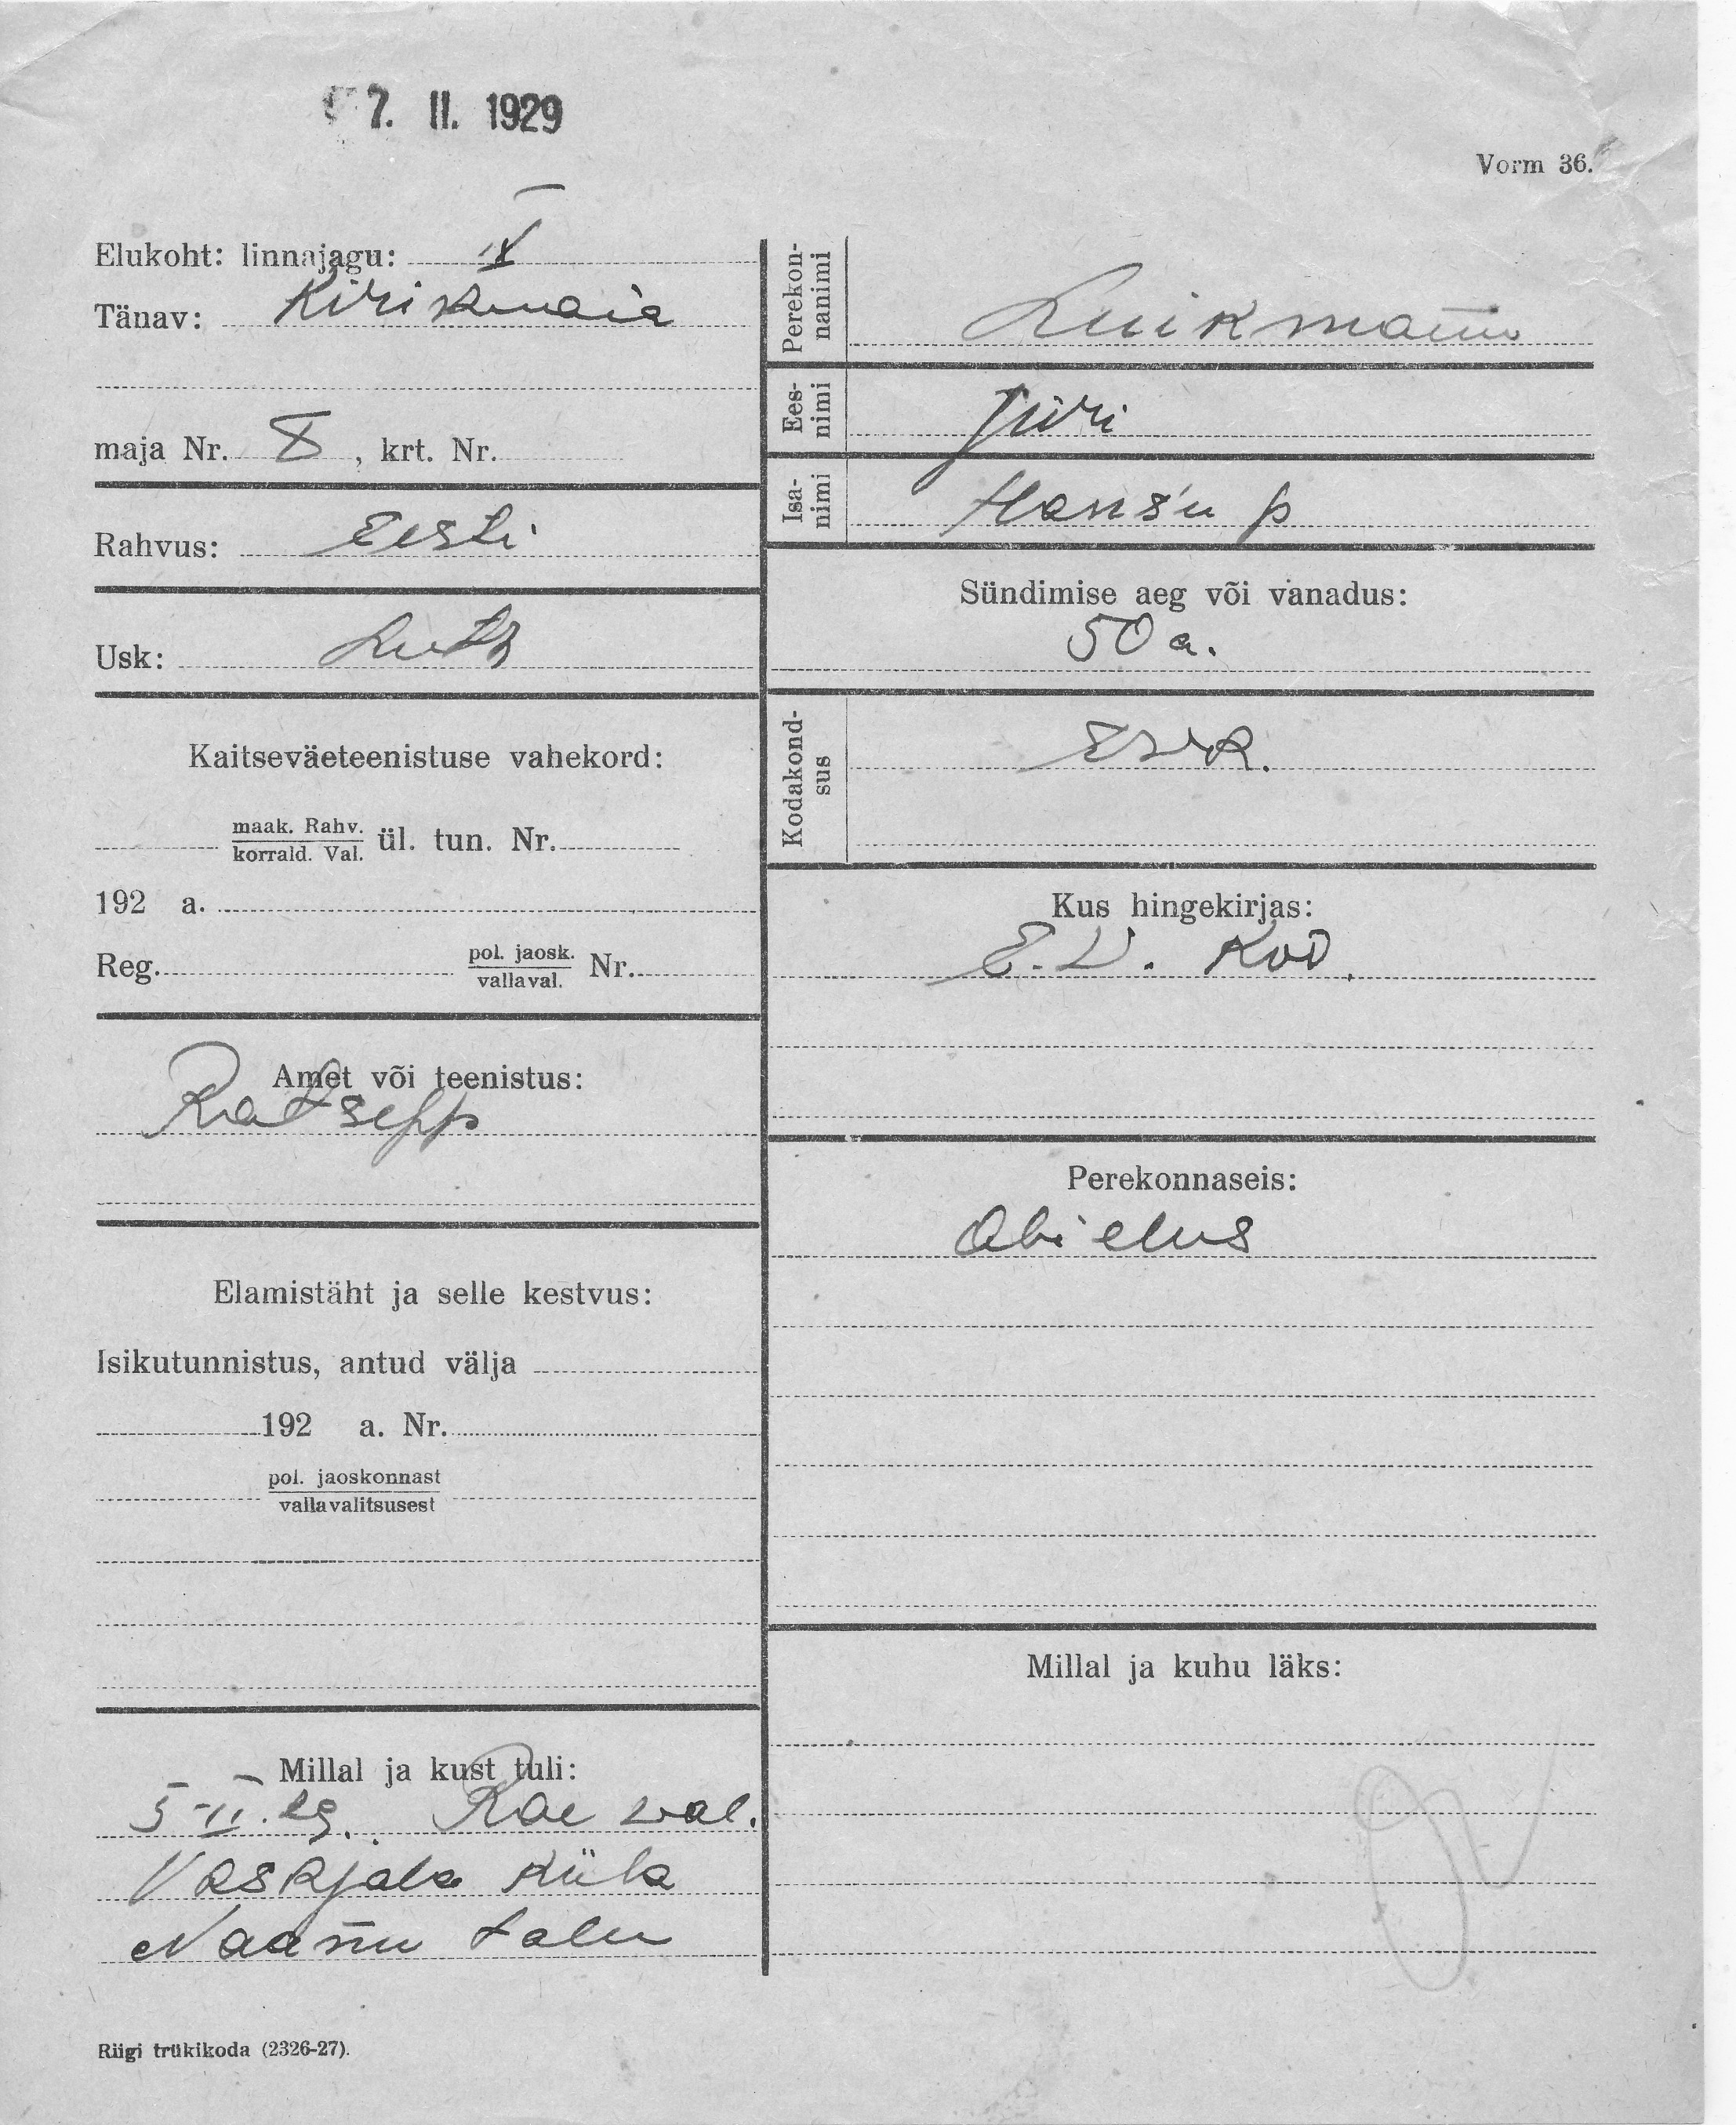 7. II. 1929
Vorm 36.
Elukoht: linnajagu:
Tänav: Kirikmaia
maja Nr. 8, krt. Nr.
Rahvus: Eesti
Usk: Luth
Kaitseväeteenistuse vahekord:
maak. Rahv.
korrald. Val. ül. tun. Nr.
192 a.
Reg. pol. jaosk.
vallaval. Nr.
Amet või teenistus:
Ratsepp
Elamistäht ja selle kestvus:
Isikutunnistus, antud välja
192 a. Nr.
pol. jaoskonnast
vallavalitsusest
Millal ja kust tuli:
5-II.29. Rae val.
Vaskjala küla
Naanu talu
Riigi trükikoda (2326-27).
Perekon-
nanimi
Luikmann
Ees-
nimi
Jüri
Isa-
nimi
Hans'u p
Sündimise aeg või vanadus:
50 a.
Kodakond-
sus
Kus hingekirjas:
E.V. Kod.
Perekonnaseis:
Abielus
Millal ja kuhu läks: